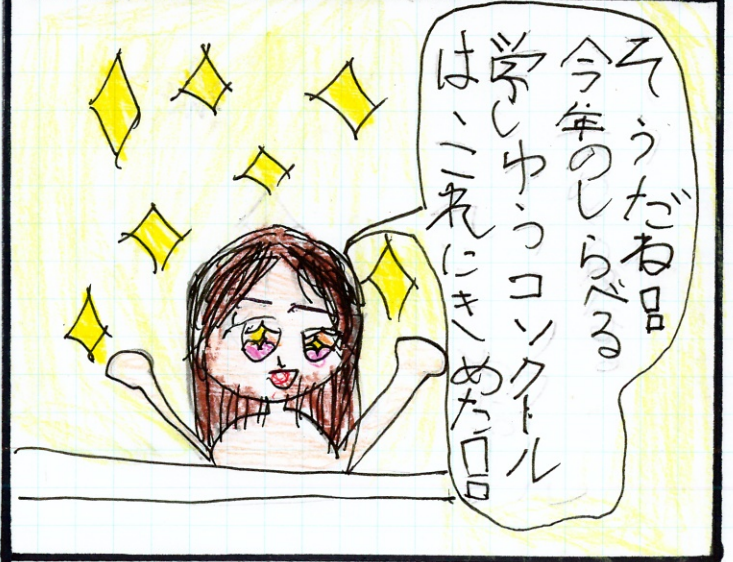 そうだね！
今年のしらべる
学しゅうコンクール
は、これにきめた！